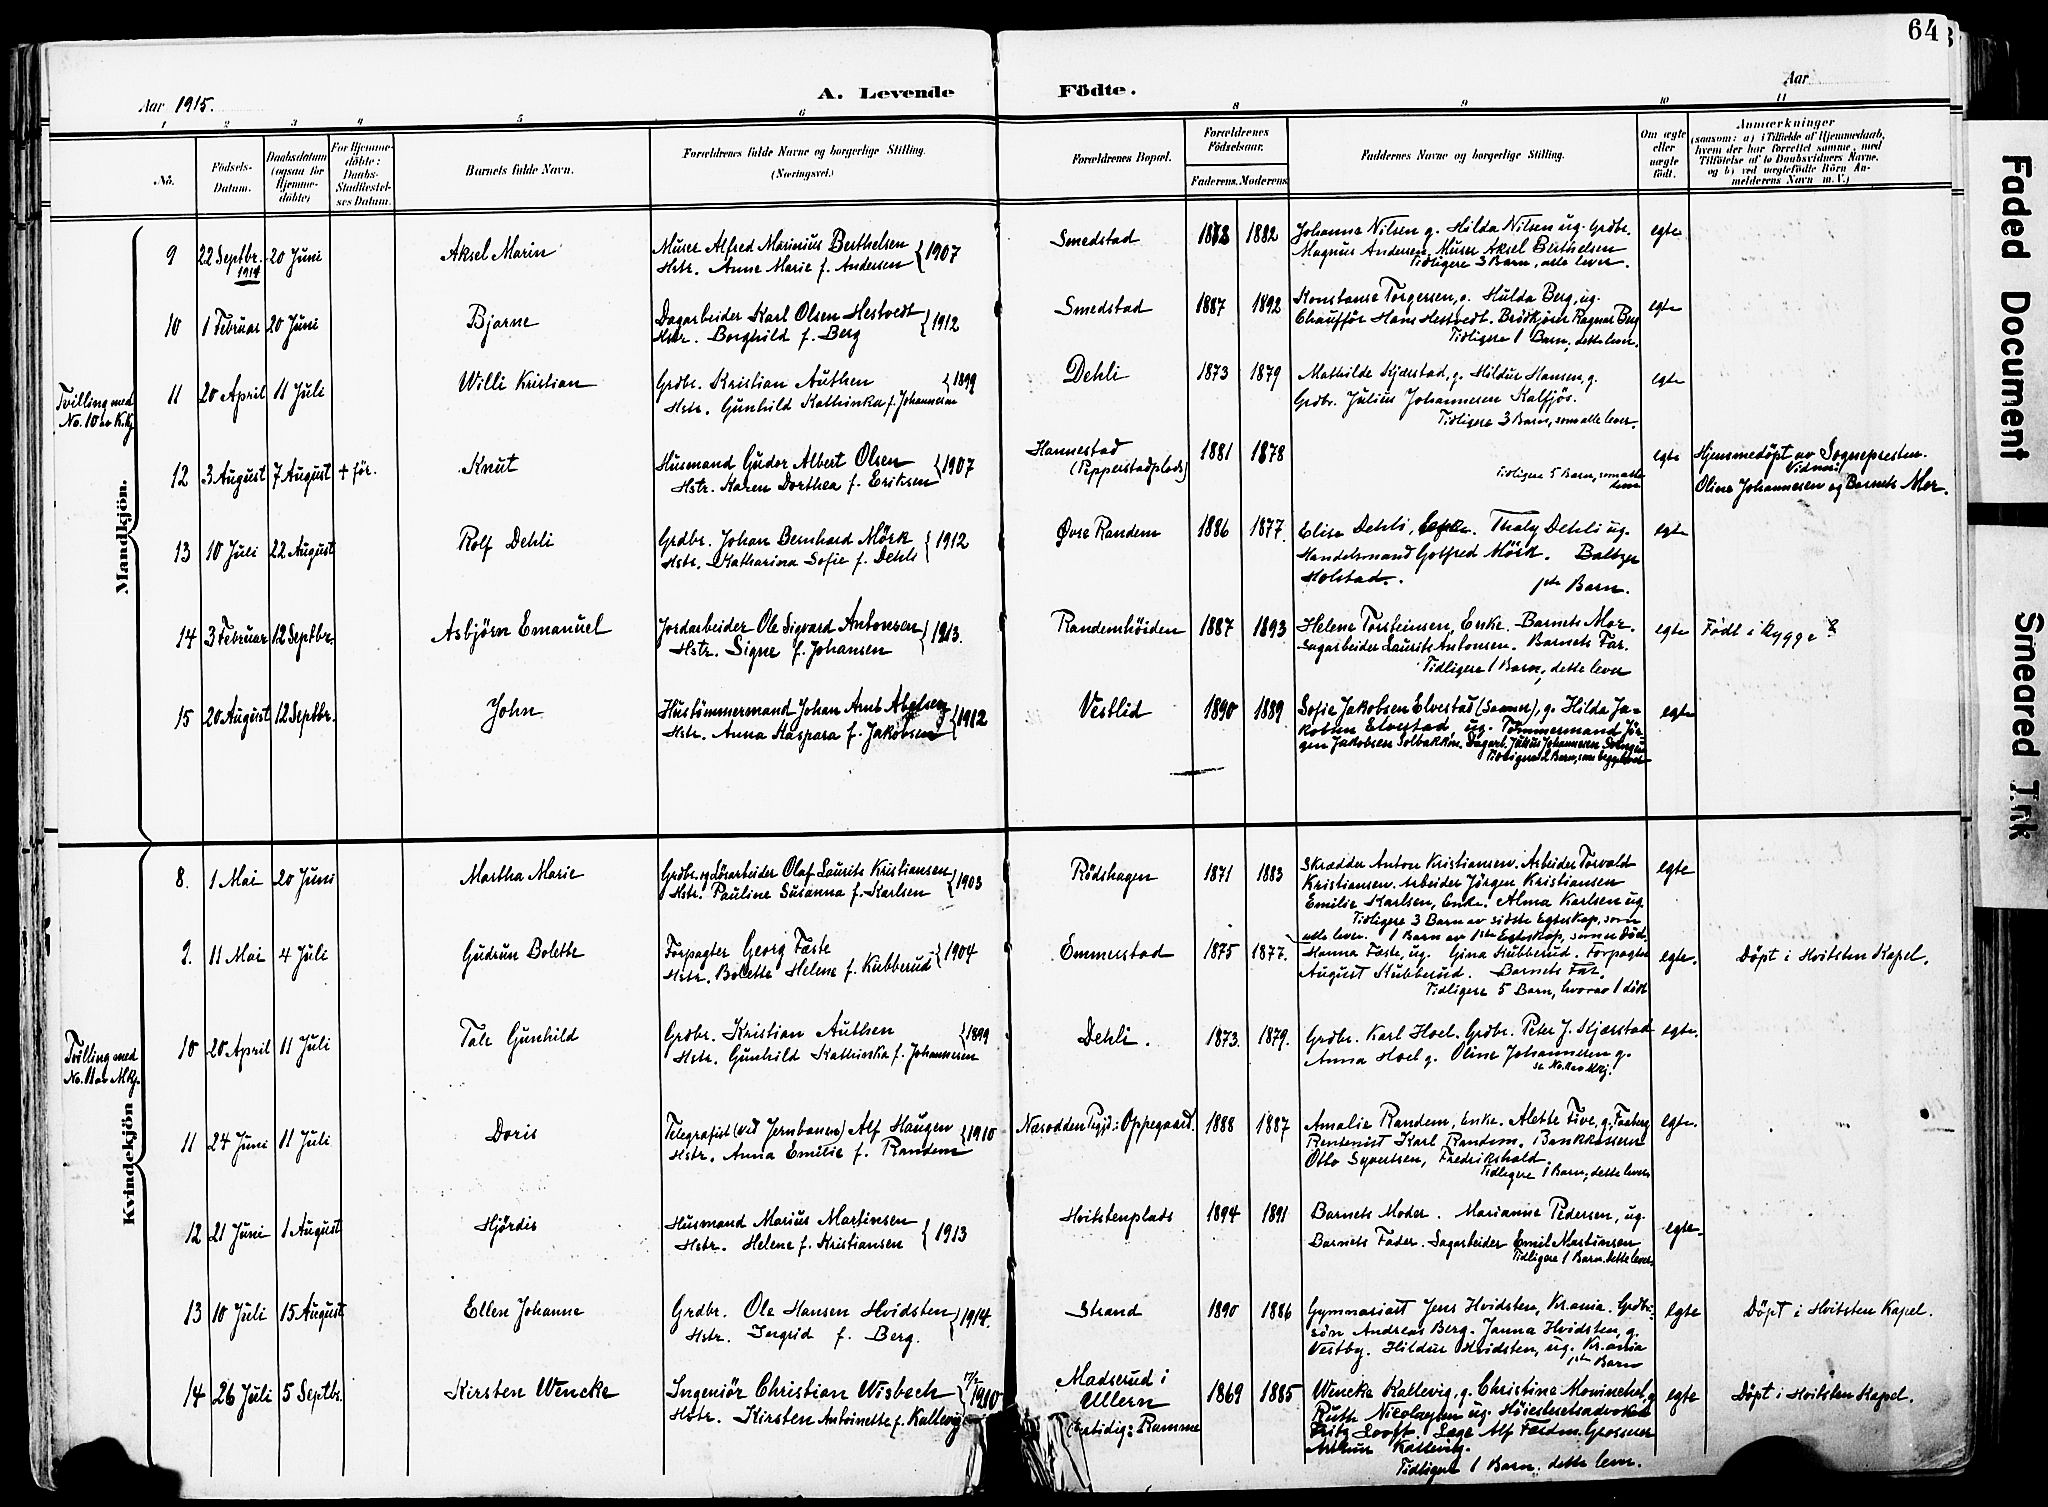 64
Aar 1915.
A. Levende Födte.
Aar
1 2 3 4 5 6 8 9 10 11
No.
Födsels-Datum.
Daabsdatum (ogsaa for Hjemme-döbte)
For Hjemme-döbte: Daabs-Stadfæstel-ses Datum.
Barnets fulde Navn.
Forældrenes fulde Navne og borgerlige Stilling. (Næringsvei.)
Forældrenes Bopæl.
Forældrenes Födselsaar.
Faderens. Moderens
Faddernes Navne og borgerlige Stilling.
Om ægte eller uægte födt.
Anmærkninger
(saasom: a) i Tilfælde af Hjemmedaab, hvem der har forrettet samme, med Tilföielse af to Daabsvidners Navne, og b) ved uægtefödte Börn Anmelderens Navn m. V.)
Mandkjön.
9 22 Septbr. 1914 20 Juni Aksel Marin
Murer Alfred Marinius Berthelsen
Hstr. Anne Marie f. Andersen { 1907
Smedstad 1882 egte
Johanne Nilsen g. Hilda Nilsen ug. Grdbr.
Magnus Andersen, Murer Aksel Berthelsen
Tidligere 3 Barn, alle lever.
10 1 Februar 20 Juni Bjarne
Dagarbeider Karl Olsen Hestvedt
Hstr. Borghild f. Berg { 1912
Smedstad 1887 1892 egte
Konstanse Torgersen, g. Hulda Berg, ug.
Chaufför Hans Hestvedt. Brödkjörer Ragnar Berg
Tidligere 1 Barn, dette lever.
Tvilling med
No. 10 av K.kj.
11 20 April 11 Juli Willi Kristian
Grdbr. Kristian Authen
Hstr. Gunhild Kathinka f. Johannesen { 1899
Dehli 1873 1879 egte
Mathilde Skjærstad, g. Hildur Hansen, g.
Grdbr. Julius Johannesen Kalfjös.
Tidligere 3 Barn, som alle lever.
12 3 August 7 August + för. Knut
Husmand Gudor Albert Olsen
Hstr. Karen Dorthea f. Eriksen { 1907
Hannestad
(Pepperstadplads) 1881 1878 egte
Tidligere 5 Barn, som alle
lever
Hjemmedöpt av Sognepresten.
Vidner:
Oline Johannesen og Barnets Mor.
13 10 Juli 22 August Rolf Dehli
Grdbr. Johan Bernhard Mörk
Hstr. Katharina Sofie f. Dehli { 1912
Øvre Randem 1886 1877. egte
Elise Dehli, Enke. Thaly Dehli ug.
Handelsmand Gotfred Mörk. Baltzer
Holstad. 1ste Barn.
14 3 Februar 12 Septbr. Asbjörn Emanuel
Jordarbeider Ole Sigvard Antonsen
Hstr. Signe f. Johansen { 1913.
Randemhöiden 1887 1893 egte
Helene Torsteinsen, Enke. Barnets Mor.
Sagarbeider Laurits Antonsen. Barnets Far.
Tidligere 1 Barn, dette lever
Födt i Rygge
15 20 August 12 Septbr. John
Hustömmermand Johan Arnt Abelsen
Hstr. Anna Kaspara f. Jakobsen { 1912
Vestlid 1890 1889 egte
Sofie Jakobsen Elvestad (Sanner), g. Hilda Ja-
kobsen Elvestad ug. Tömmermand Jör-
gen Jakobsen Solbakken. Dagarb. Julius Johannesen
Tidligere 2 Barn, som begge lever
Kvindekjön
8. 1 Mai 20 Juni Martha Marie
Grdbr. og Lösarbeider Olaf Laurits Kristiansen
Hstr. Pauline Susanna f. Karlsen { 1903
Rödshagen 1871 1883 egte
Skrædder Anton Kristiansen. Arbeider Torvald
Kristiansen. Arbeider Jörgen Kristiansen
Emilie Karlsen, Enke. Alma Karlsen ug.
Tidligere 3 Barn av sidste Egteskap, som
alle lever. 1 Barn av 1ste Egteskap, som er död.
9. 11 Mai 4 Juli Gudrun Bolette
Forpagter Georg Fæste
Hstr. Bolette Helene f. Kubberud { 1904
Emmerstad 1875 1877. egte.
Hanna Fæste, ug. Gina Kubberud. Forpagter
August Kubberud. Barnets Far.
Tidligere 5 Barn, hvorav 1 död
Döpt i Hvitsten Kapel.
Tvilling med
No. 11 av Mkj.
10 20 April 11 Juli Tale Gunhild
Grdbr. Kristian Authen
Hstr. Gunhild Kathinka f. Johannesen { 1899
Dehli. 1873. 1879. egte.
Grdbr. Karl Hoel. Grdbr. Peter J. Skjærstad
Anna Hoel g. Oline Johannesen g.
se No. 11 av Mkj.
11 24 Juni 11 Juli Doris
Telegrafist (ved Jernbanen) Alf Haugen
Hstr. Anna Emilie f. Randem { 1910
Næsodden Pgjd.: Oppegaard. 1888 1887 egte.
Amalie Randem, Enke. Alette Five, g. Faaberg
Rentenist Karl Randem. Bankkasserer
Otto Syvertsen, Fredrikshald.
Tidligere 1 Barn, dette lever
12 21 Juni 1 August Hjördis
Husmand Marius Martinsen
Hstr. Helene f. Kristiansen { 1913
Hvitstenplads 1894 1891 egte
Barnets Moder. Marianne Pedersen, ug.
Barnets Fader. Sagarbeider Emil Martinsen
Tidligere 1 Barn. dette lever.
13 10 Juli 15 August Ellen Johanne
Grdbr. Ole Hansen Hvidsten
Hstr. Ingrid f. Berg. { 1914.
Strand 1890 1886 egte
Gymnasiast Jens Hvidsten, Kr.ania. Grdbr.-
sön Andreas Berg. Janna Hvidsten, g.
Vestby. Hildur Hvidsten, ug. Kr.ania
1ste Barn
Döpt i Hvitsten Kapel.
14 26 Juli 5 Septbr. Kirsten Wencke
Ingeniör Christian Wisbech
Hstr. Kirsten Antoinette f. Kallevig { 1910
Madserud i
Ullern
(Samtidig: Ramme 1869 1885 egte
Wencke Kallevig, g. Christine g
Ruth Nicolaysen ug. Höiesteretsadvokat
Fritz Looft. Læge Alf Færdm. Grosserer
Arthur Kallevig.
Tidligere 1 Barn, dette lever.
Döpt i Hvitsten Kapel.
Faded Document
Smeared Ink